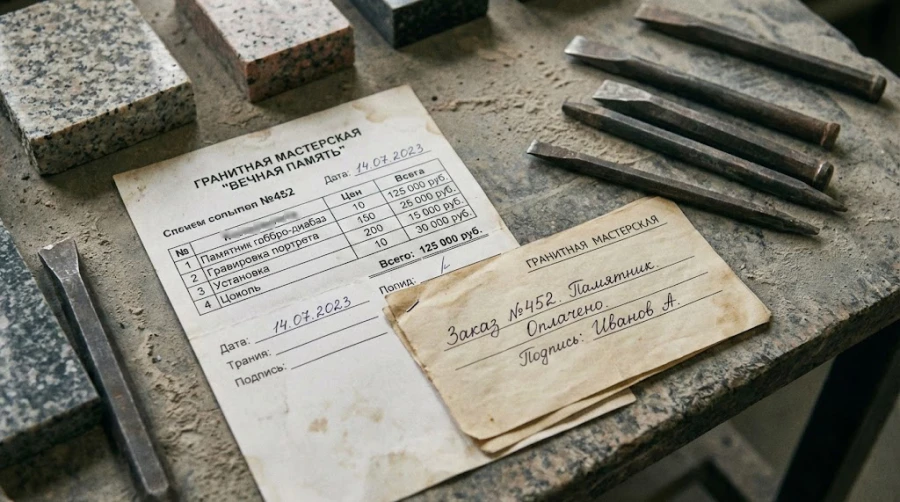 ГРАНИТНАЯ МАСТЕРСКАЯ
"ВЕЧНАЯ ПАМЯТЬ"
Дата: 14.07.2023
Спечем сопыпел №452
№ Цен Всего
1 Памятник гоббро-диабаз 10 125 000 руб.
2 Гравировка портрета 150 25 000 руб.
3 Установка 200 15 000 руб.
4 Цоколь 10 30 000 руб.
Всего: 125 000 руб.
Дата: 14.07.2023
Попид:
Трания:
Подпись:
ГРАНИТНАЯ МАСТЕРСКАЯ
Заказ №452. Памятник.
Оплачено.
Подпись: Иванов А.